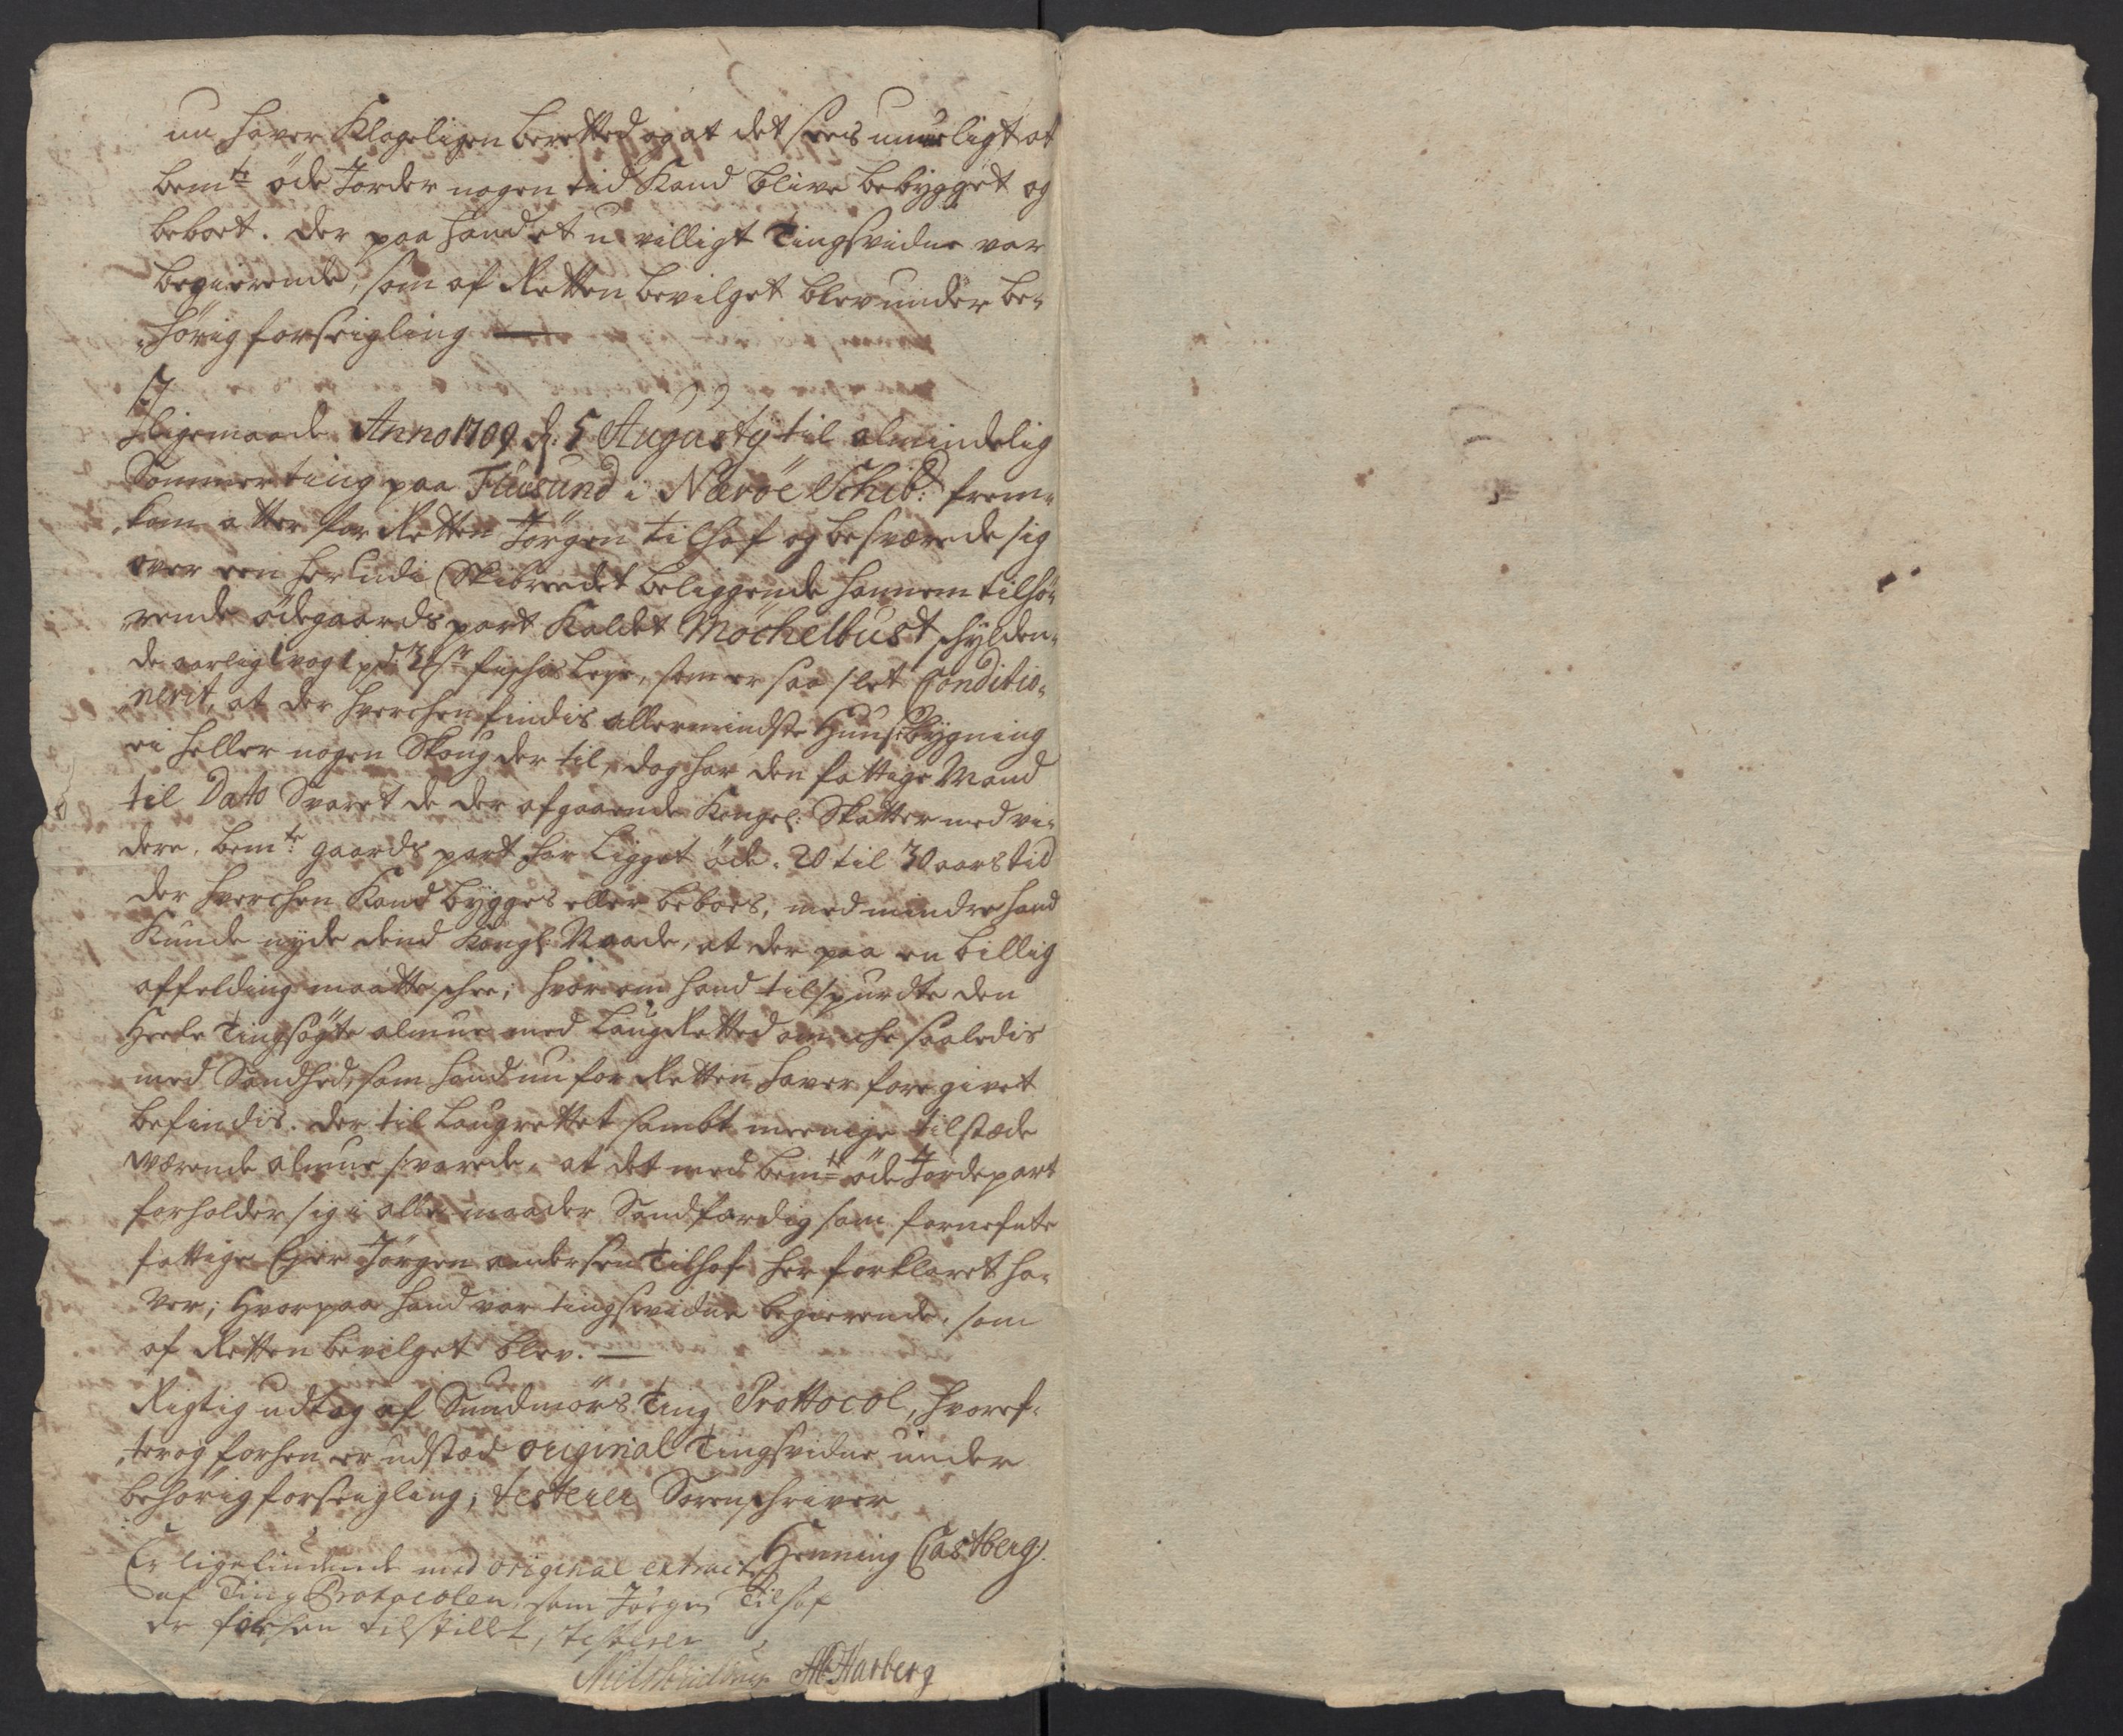 nu hafver Klageligen beretted og at det sees umueligt at
bemte öde Jorder nogen tid Kand blive bebygget og
beboet. der paa hand et u villigt Tingsvidne var
begierende, som af Retten bevilget blev under be-
hörig forseigling —
Ligemaade Anno 1709 d. 5 Augusty til almindelig
Sommerting paa Flusund i Næröe Schib: frem-
kom atter for Retten Jörgen tilhof og besværede sig
over een her udi Skibreedet beliggende hannem tilhö-
rende ödegaards part Kaldet Möchelbust schylden-
de aarlig 1 vog 1 pd: fische Leye, som er saa slet Conditio-
nerit, at der hverchen findis allermindste Huusebygning
ei heller nogen Skoug der til, dog har den fattige Mand
til Dato Svaret de der afgaaende Kongel: Skatter med vi-
dere, bemte gaards part har Ligget öde. 20 til 30 aars tid
der hverchen Kand bygges eller beboes, med mindre hand
Kunde nyde dend Kongl: Naade, at der paa en billig
affelding maatte schee; hvor om hand tilspurdte den
Heele Tingsögte almue med LaugRetted om iche saaledis
med Sandhed, som hand nu for Retten hafver foregivet
befindis. der til Laugrettet sambt meenige tilstæde
værende almue svarede, at det med bemte öde Jordepart
forholder sig i alle maader Sandfærdig som fornefnte
fattige Ejer Jörgen andersen Tilhof her forklaret ha-
ver; Hvorpaa hand var tingsvidne begierende, som
af Retten bevilget blev. —
Rigtig udtog af Sundmörs Ting Prottocol, hvoref-
ter og forhen er udstæd original Tingsvidne under
behörig forseigling, testerer Sorenschriver
Henning Castberg.
Er ligelydende med original extract
af Ting Protocolen, som Jörgen Tilhof
er forhen tilstillet, testerer